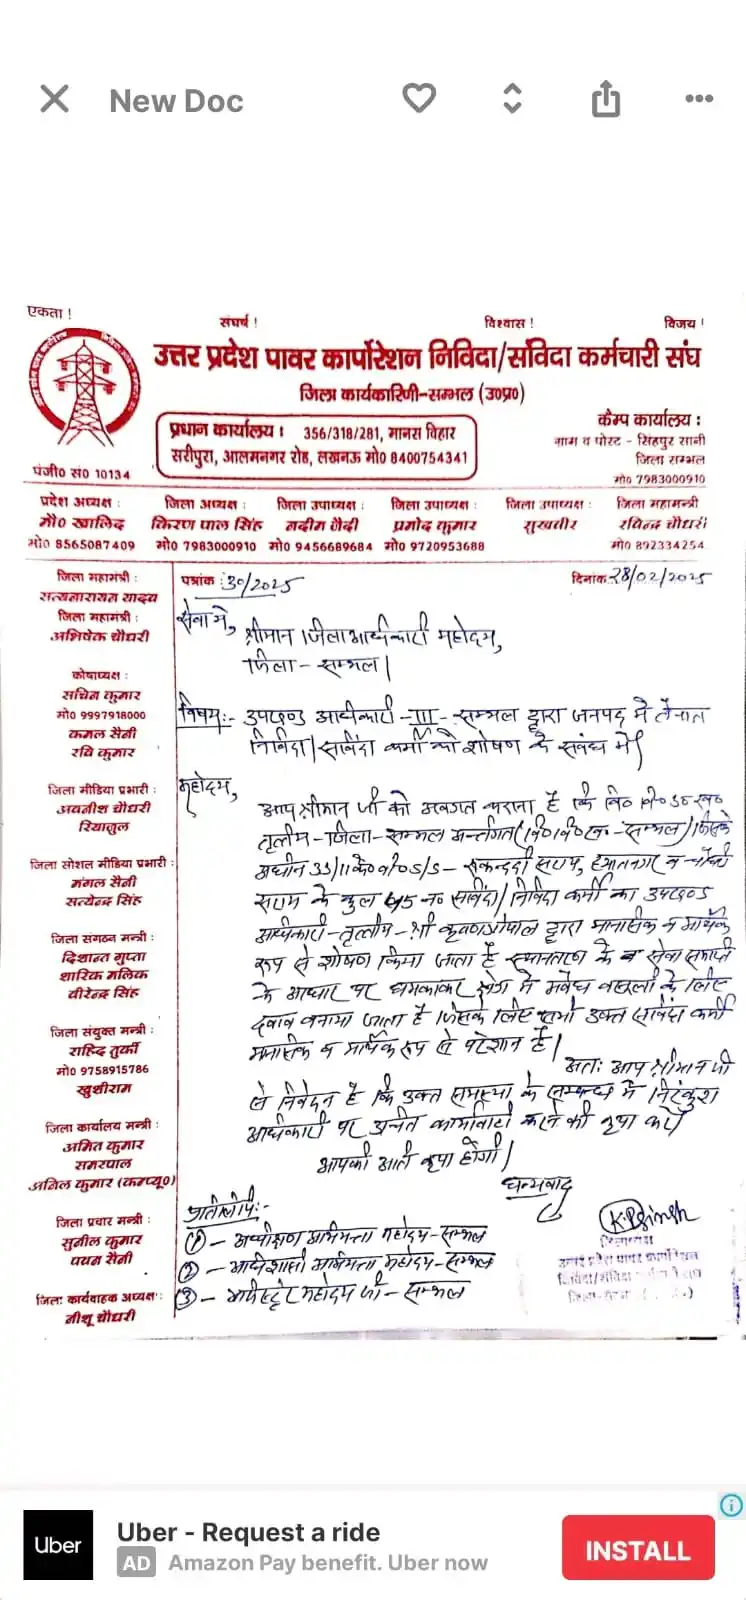 New Doc
एकता !
संघर्ष !
विश्वास !
विजय !
उत्तर प्रदेश पावर कार्पोरेशन निविदा/संविदा कर्मचारी संघ
जिला कार्यकारिणी-सम्भल (उ०प्र०)
प्रधान कार्यालय : 356/318/281, मानस विहार
सरीपुरा, आलमनगर रोड, लखनऊ मो० 8400754341
कैम्प कार्यालय :
ग्राम व पोस्ट - सिंहपुर सानी
जिला सम्भल
मो० 7983000910
पंजी० सं० 10134
प्रदेश अध्यक्ष : जिला अध्यक्ष : जिला उपाध्यक्ष : जिला उपाध्यक्ष : जिला उपाध्यक्ष : जिला महामन्त्री
मौ० खालिद किरण पाल सिंह नदीम जैदी प्रमोद कुमार सुखवीर रविन्द्र चौधरी
मो० 8565087409 मो० 7983000910 मो० 9456689684 मो० 9720953688 मो० 892334254
जिला महामंत्री :
सत्यनारायन यादव
जिला महामंत्री :
अभिषेक चौधरी
कोषाध्यक्ष :
सचिन कुमार
मो० 9997918000
कमल सैनी
रवि कुमार
जिला मीडिया प्रभारी :
अवनीश चौधरी
रियाजुल
जिला सोशल मीडिया प्रभारी :
मंगल सैनी
सत्येन्द्र सिंह
जिला संगठन मन्त्री :
दिशान्त गुप्ता
शारिक मलिक
वीरेन्द्र सिंह
जिला संयुक्त मन्त्री :
राहिद तुर्की
मो० 9758915786
खुशीराम
जिला कार्यालय मन्त्री :
अमित कुमार
समरपाल
अनिल कुमार (कम्प्यू०)
जिला प्रचार मन्त्री :
सुनील कुमार
पवन सैनी
जिला कार्यवाहक अध्यक्ष :
नीशू चौधरी
पत्रांक : 30/2025 दिनांक 28/02/2025
सेवा मे,
श्रीमान जिलाअधिकारी महोदय,
जिला - सम्भल।
विषय:- उपखण्ड अधिकारी - III - सम्भल द्वारा जनपद मे तैनात
निविदा/संविदा कर्मी को शोषण के संबंध में।
महोदय,
आप श्रीमान जी को अवगत कराना है कि वि० वि० उ० ख०
तृतीय - जिला - सम्भल अन्तर्गत (वि० वि० ख० - सम्भल) जिसके
अधीन 33/11 के० वी० S/S - सराय, हयातनगर व
सराय के कुल 45 न० संविदा/निविदा कर्मी का उपखण्ड
अधिकारी - तृतीय - श्री कृष्ण गोपाल द्वारा मानसिक व आर्थिक
रूप से शोषण किया जाता है स्थानतरण के व सेवा समाप्ति
के आधार पर धमकाकर क्षेत्र मे अवैध वसूली के लिए
दबाव बनाया जाता है जिसके लिए सभी उक्त संविदा कर्मी
मानसिक व आर्थिक रूप से परेशान है।
अतः आप श्रीमान जी
से निवेदन है कि उक्त समस्या के सम्बन्ध मे निरंकुश
अधिकारी पर उचित कार्यवाही करने की कृपा करें
आपकी अति कृपा होगी।
धन्यवाद
प्रतिलिपि:-
① - अधीक्षण अभियन्ता महोदय - सम्भल
② - अधिशासी अभियन्ता महोदय - सम्भल
③ - महोदय जी - सम्भल
K.P Singh
जिलाध्यक्ष
उत्तर प्रदेश पावर कार्पोरेशन
निविदा/संविदा संघ
Uber
Uber - Request a ride
AD Amazon Pay benefit. Uber now
INSTALL